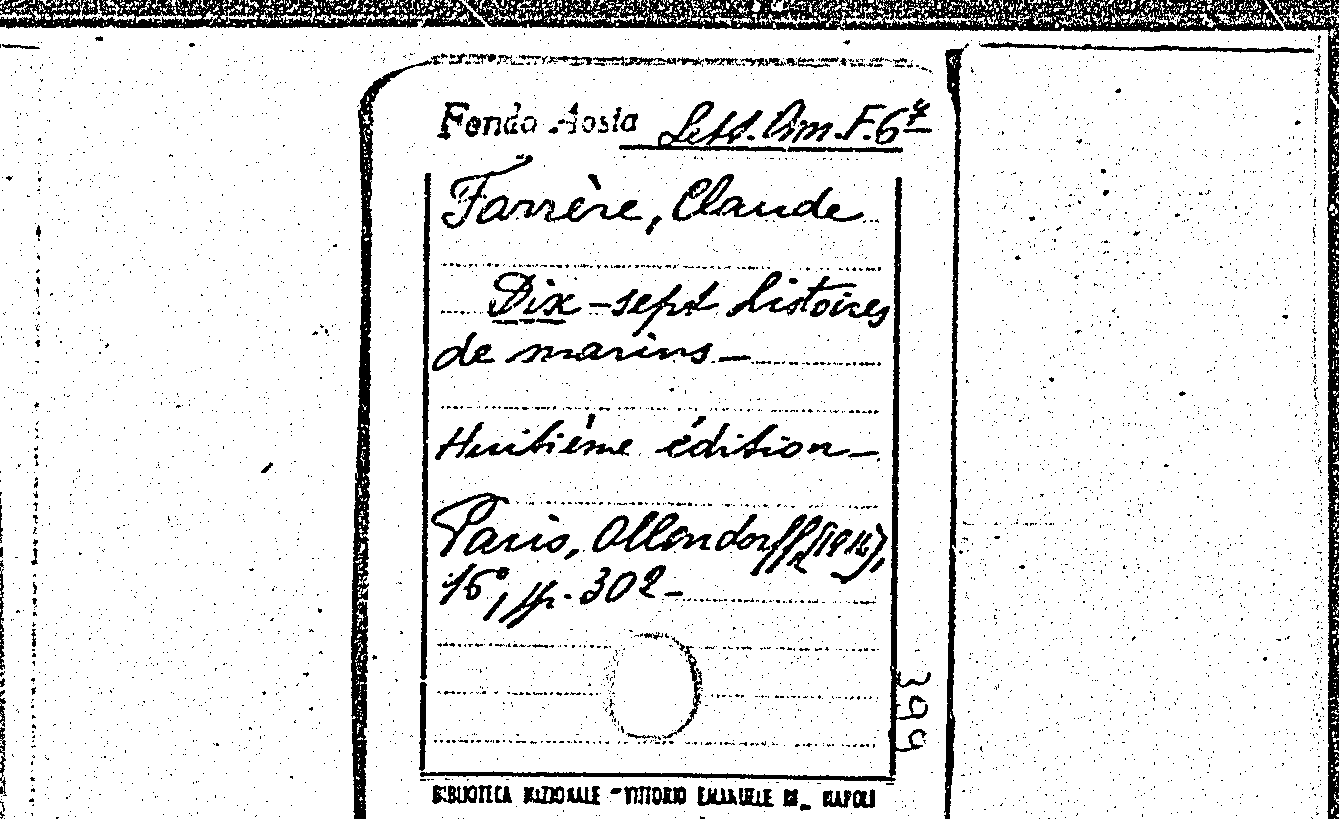 Fondo Aosta Lett. Am. F. 64
Farrère, Claude
Dix-sept histoires
de marins —
Huitième édition —
Paris, Ollendorff,
16°, pp. 302 —
399
BIBLIOTECA NAZIONALE "VITTORIO EMANUELE III" NAPOLI